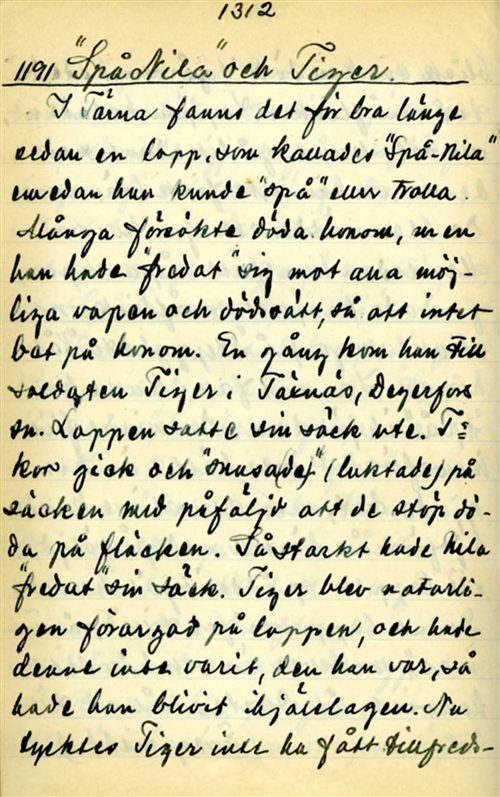 1312
1191 "Spå Nila" och Tiger.
I Tärna fanns det för bra länge
sedan en lapp, som kallades "Spå-Nila"
emedan han kunde "spå" eller trolla.
Många försökte döda honom, men
han hade "fredat" sig mot alla möj-
liga vapen och dödssätt, så att intet
bet på honom. En gång kom han till
soldaten Tiger i Tärnäs, Degerfors
sn. Lappen satte sin säck ute. T:s
kor gick och "snusa(de)" (luktade) på
säcken med påföljd att de stöp dö-
da på fläcken. Så starkt hade Nila
"fredat" sin säck. Tiger blev naturli-
gen förargad på lappen, och hade
denne inte varit, den han var, så
hade han blivit ihjälslagen. Nu
tycktes Tiger inte ha fått tillfreds-